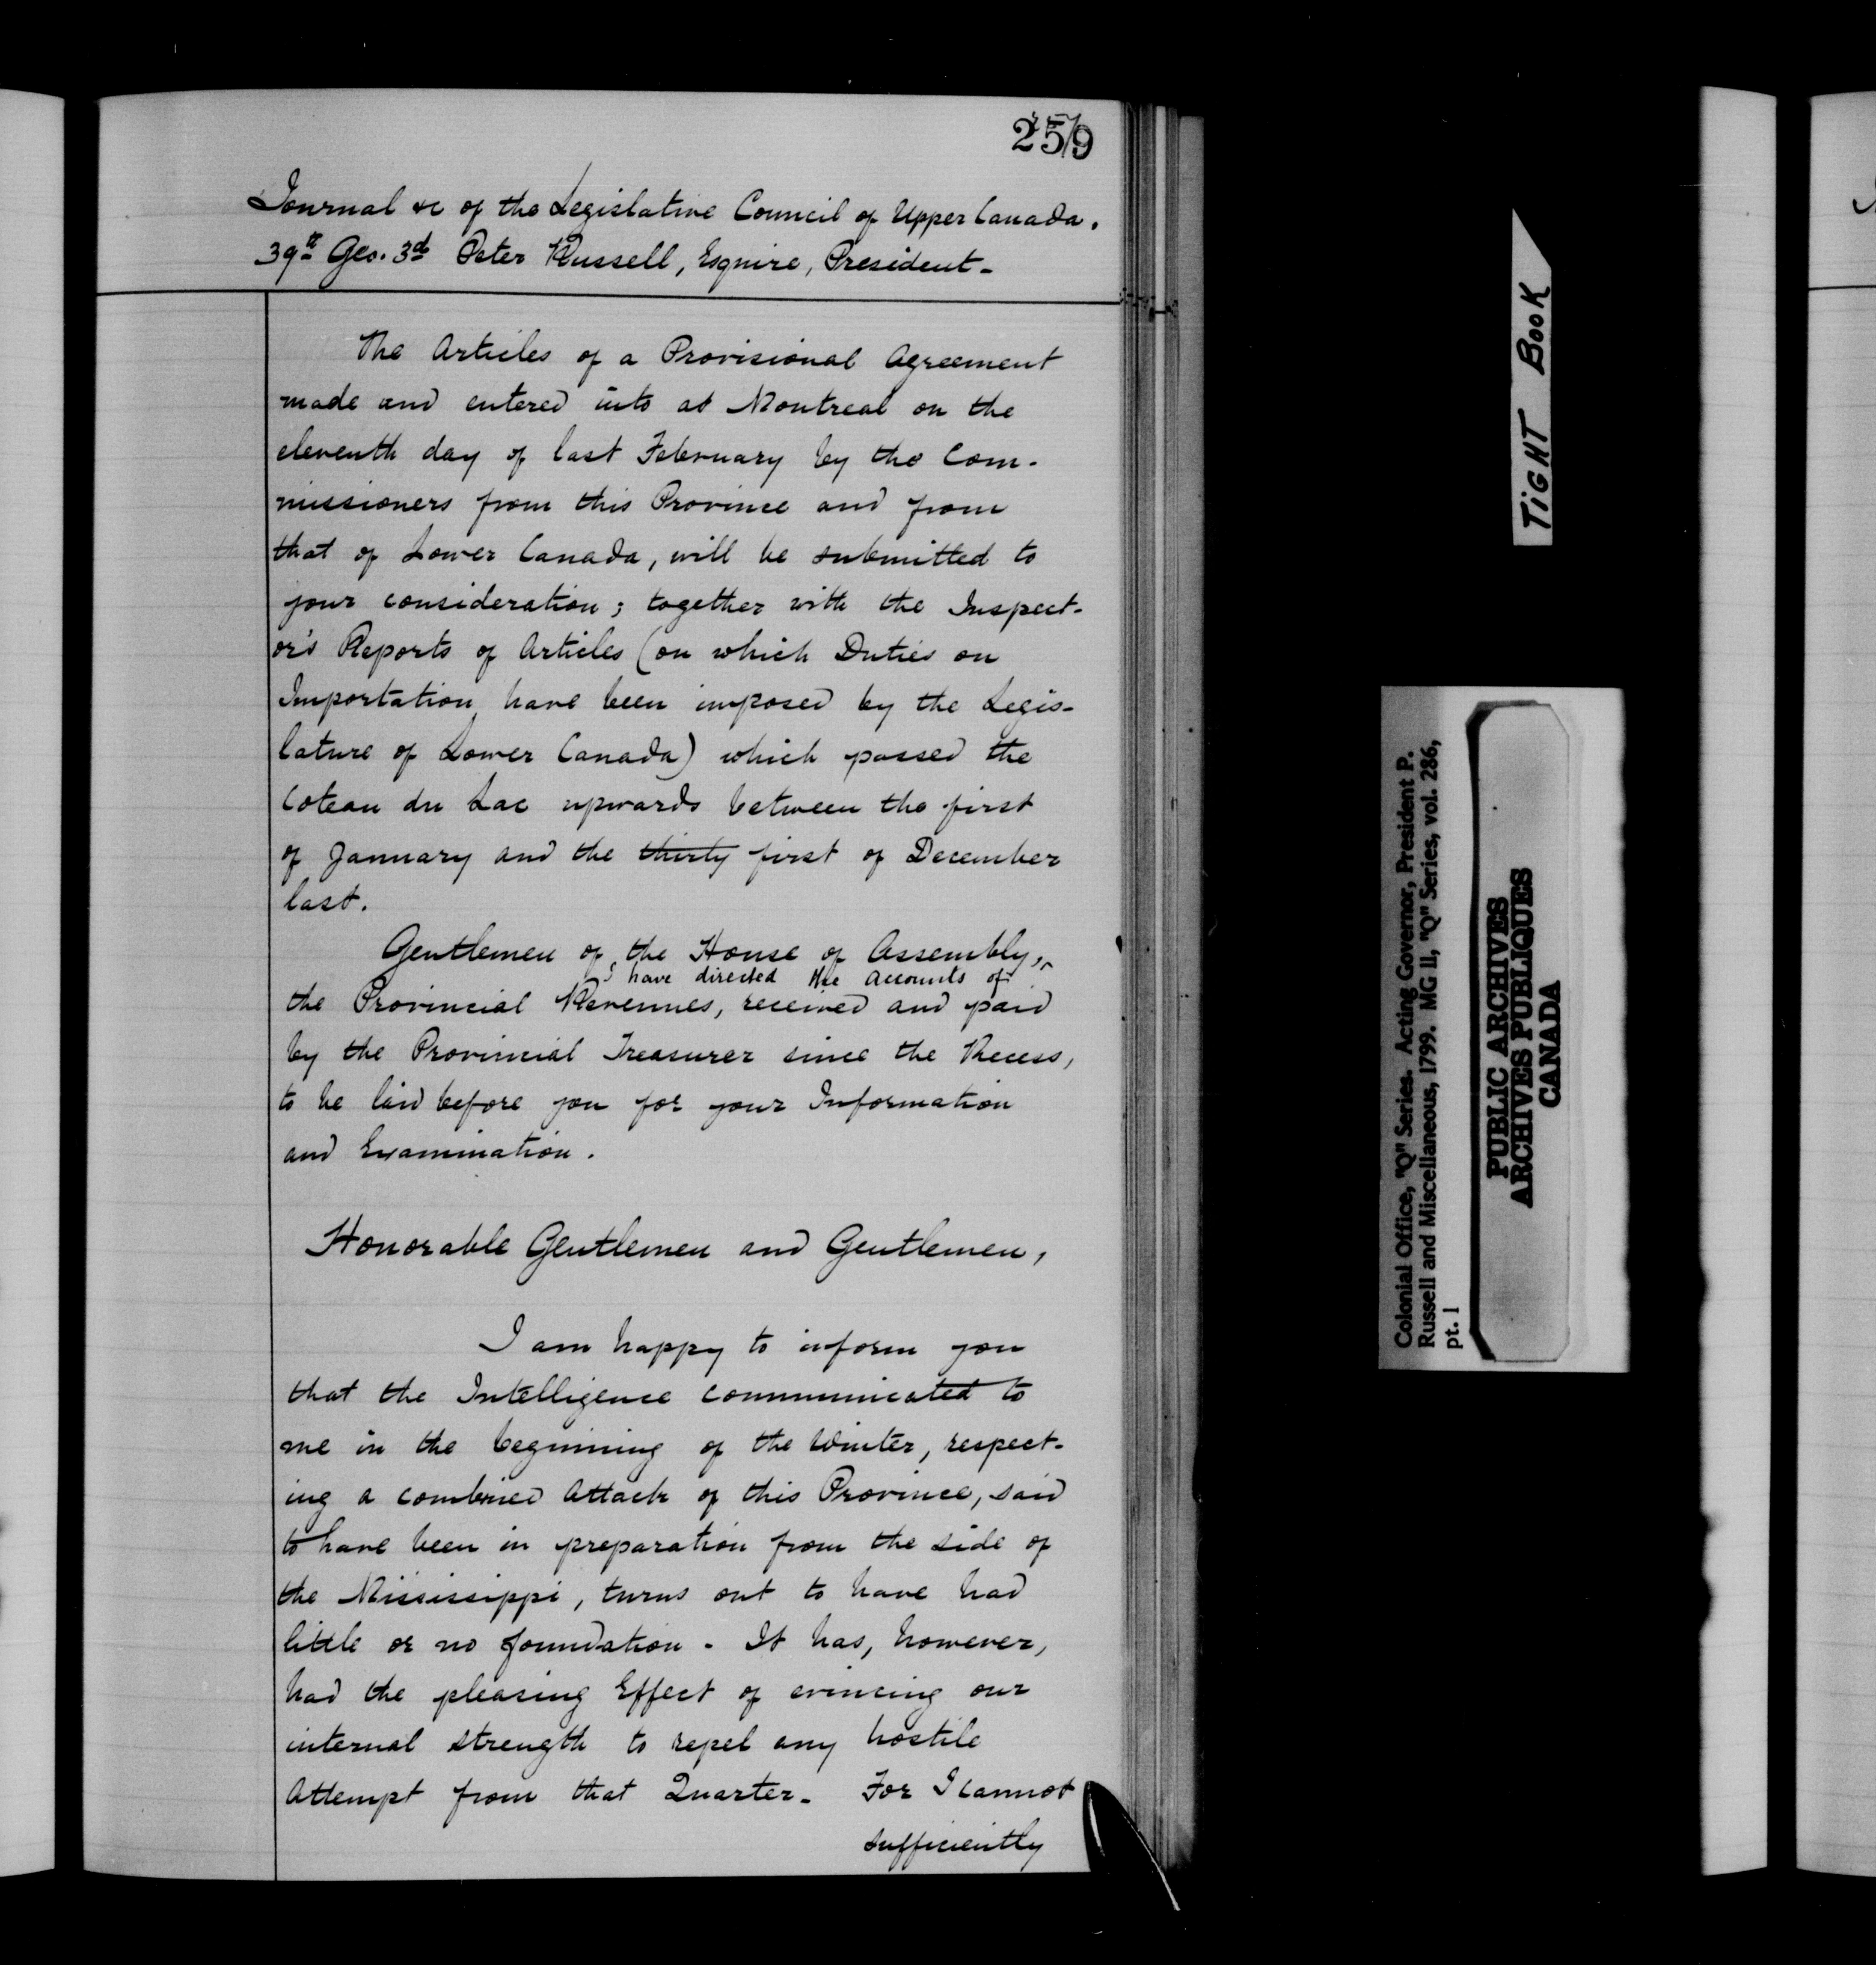 259
Journal &c of the Legislative Council of Upper Canada.
39th Geo. 3d Peter Russell, Esquire, President-
The Articles of a Provisional Agreement
made and entered into at Montreal on the
eleventh day of last February by the Com-
missioners from this Province and from
that of Lower Canada, will be submitted to
your consideration; together with the Inspect-
or's Reports of Articles (on which Duties on
Importation have been imposed by the Legis-
lature of Lower Canada) which passed the
Coteau du Lac upwards between the first
of January and the thirty first of December
last.
Gentlemen of the House of Assembly,
I have directed the Accounts of
the Provincial Revenues, received and paid
by the Provincial Treasurer since the Recess,
to be laid before you for your Information
and Examination.
Honorable Gentlemen and Gentlemen,
I am happy to inform you
that the Intelligence communicated to
me in the beginning of the Winter, respect-
ing a combined Attack of this Province, said
to have been in preparation from the side of
the Mississippi, turns out to have had
little or no foundation. It has, however,
had the pleasing Effect of evincing our
internal strength to repel any hostile
Attempt from that Quarter. For I cannot
sufficiently
TIGHT BOOK
Colonial Office, "Q" Series. Acting Governor, President P.
Russell and Miscellaneous, 1799. MG 11, "Q" Series, vol. 286,
pt. 1
PUBLIC ARCHIVES
ARCHIVES PUBLIQUES
CANADA